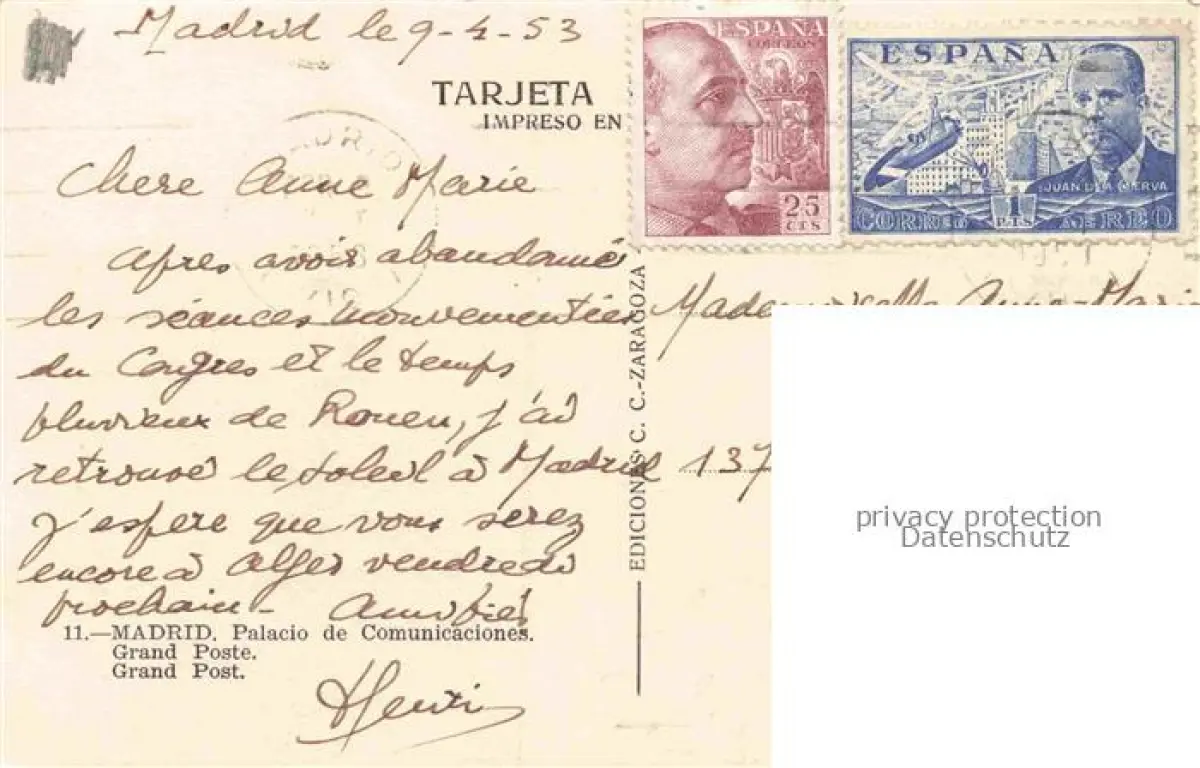 Madrid le 9-4-53
TARJETA
IMPRESO EN
ESPAÑA
CORREOS
25
CTS
ESPAÑA
JUAN DE LA CIERVA
1
PTS
CORREO AEREO
Chere Anne Marie
Apres avoir abandonné
les séances mouvementées
du Congres et le temps
pluvieux de Rouen, j'ai
retrouvé le soleil à Madrid
J'espere que vous serez
encore à Alger vendredi
prochain - Amitiés
Henri
11.—MADRID. Palacio de Comunicaciones.
Grand Poste.
Grand Post.
EDICIONES C. C.-ZARAGOZA
Mademoiselle Anne-Marie
137
privacy protection
Datenschutz